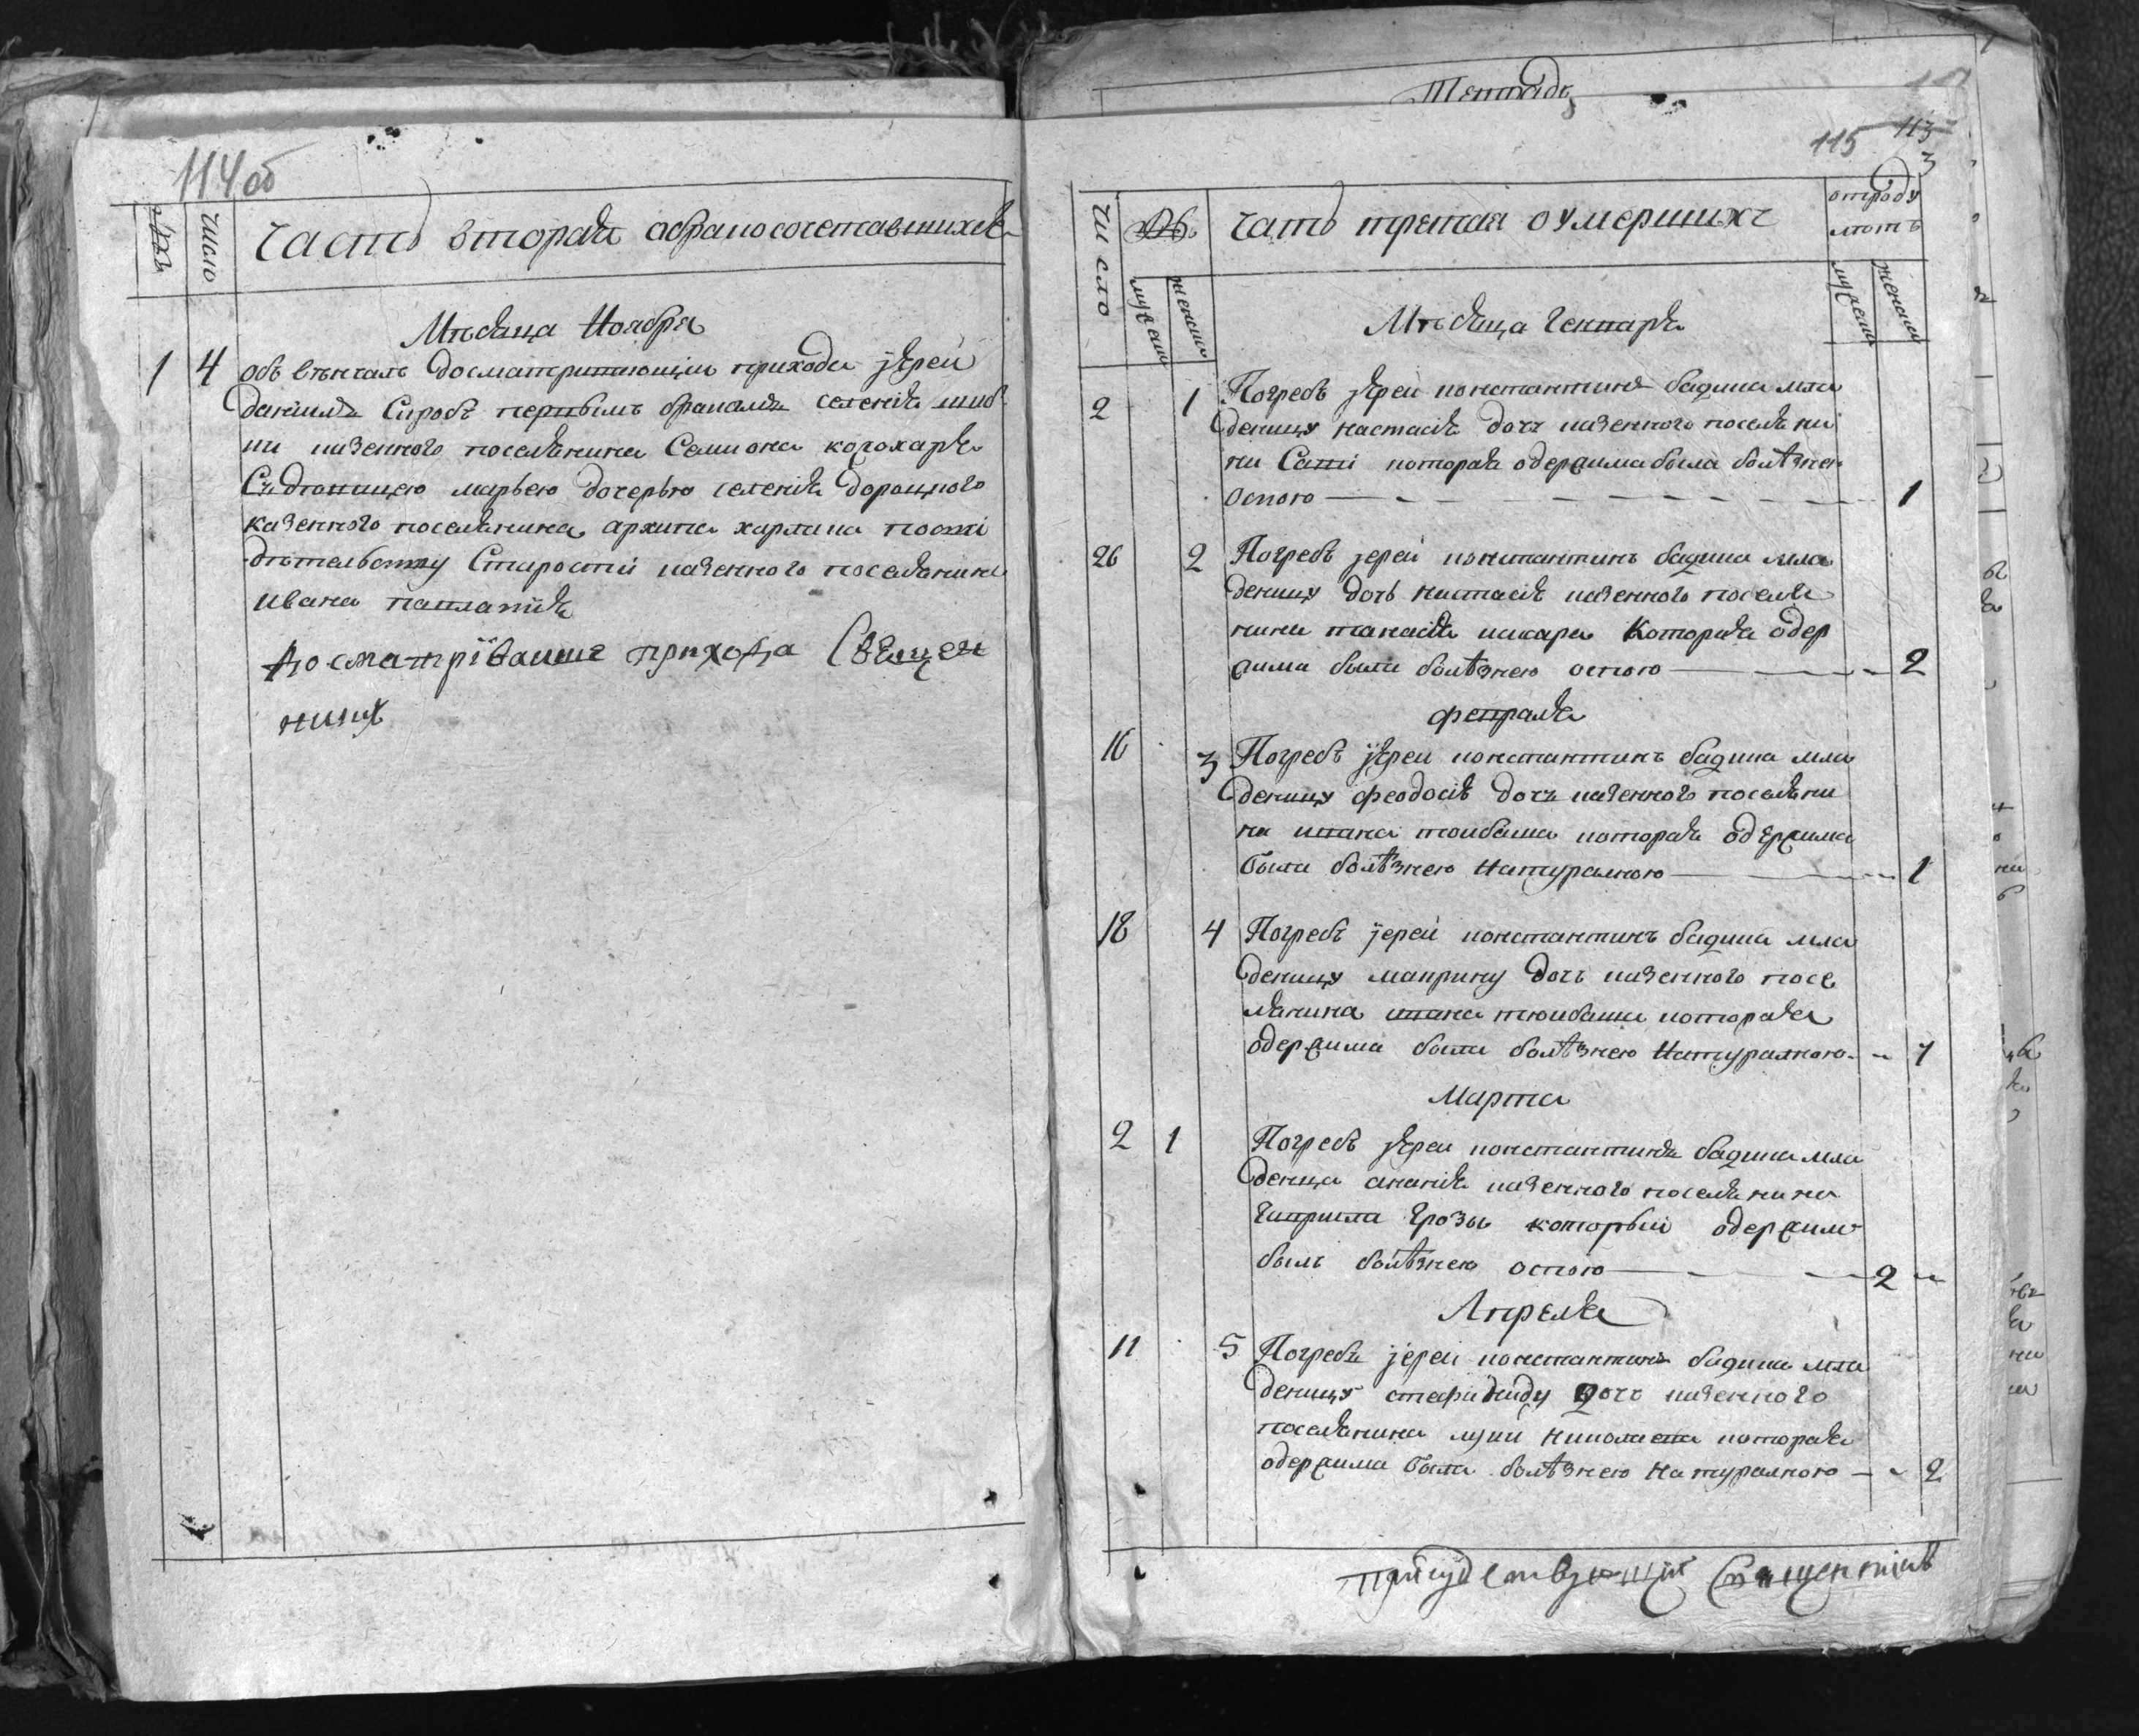 114об
№
число
Часть вторая обракосочетавшихся
Мѣсяца Ноября
1 4 обвѣнчалъ досматривающии прихода іерей
Даніилъ Сировъ первымъ бракомъ селенія
казенного поселянина Семиона
Съ девицею марьею дочерью селенія
казенного поселянина архипа
дѣтельству Старости казенного поселянина
ивана
досматріваюше прихода Свещен
никъ
Тетрадь
115 113
3
Число
муж женски
Чать третая оумершихъ
отроду
лѣтъ
мужеска женска
Мѣсяца Генваря
2 1 Погребъ іерей константинъ бадика мла
деницу настасія дочь казенного поселяни
на которая одержима была болѣзнею
оспою 1
26 2 Погребъ іерей константинъ бадика мла
деницу дочь настасія казенного поселя
нина танасія которая одер
жима была болѣзнею оспою 2
февраля
16 3 Погребъ іерей константинъ бадика мла
деницу феодосія дочь казенного поселяни
на ивана которая одержима
была болѣзнею натуралною 1
18 4 Погребъ іерей константинъ бадика мла
деницу маврину дочь казенного посе
лянина ивана которая
одержима была болѣзнею натуралною 1
Марта
2 1 Погребъ іерей константинъ бадика мла
денца ананія казенного поселянина
Гаврила Грозы который одержим
былъ болѣзнею оспою 2
Апреля
11 5 Погребъ іерей константинъ бадика мла
деницу дочь казенного
поселянина николаева которая
одержима была болѣзнею натуралною 2
Священникъ